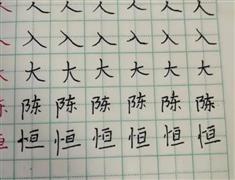 入入入入入入
大大大大大大
陈陈陈陈陈陈
恒恒恒恒恒恒